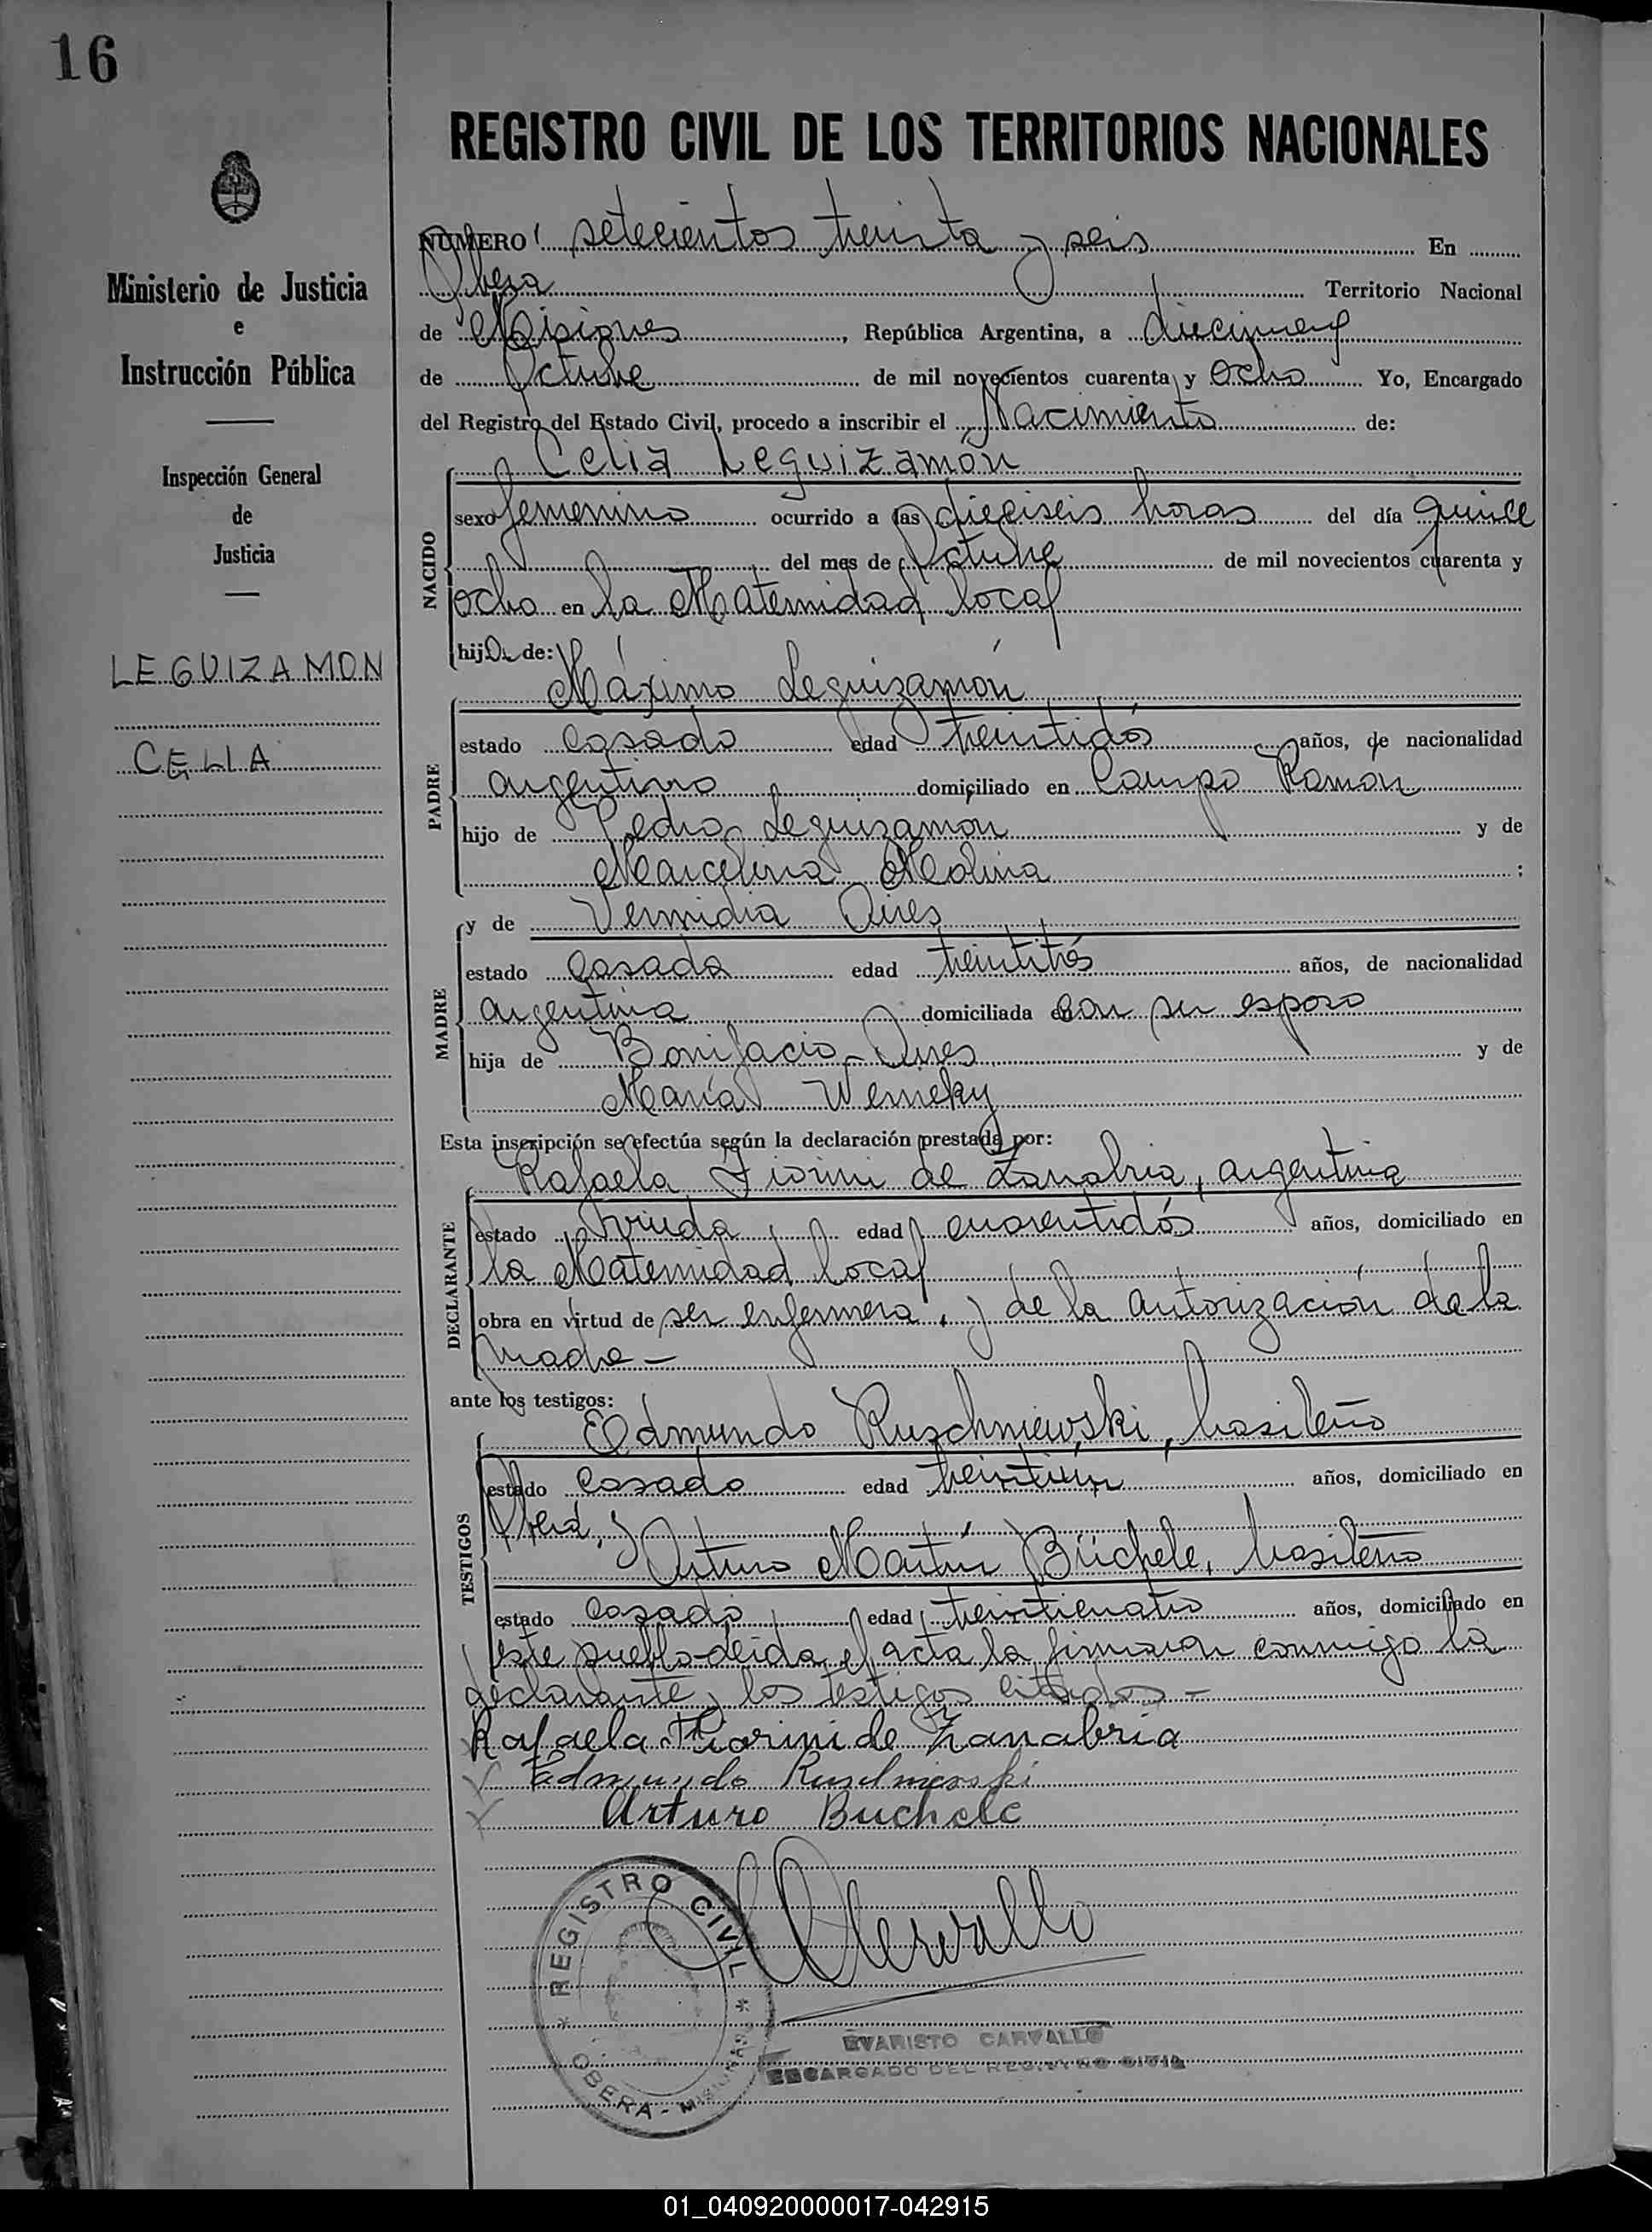 16
REGISTRO CIVIL DE LOS TERRITORIOS NACIONALES
Ministerio de Justicia
e
Instrucción Pública
Inspección General
de
Justicia
LEGUIZAMON
CELIA
NUMERO setecientos treinta y seis En
Oberá Territorio Nacional
de Misiones, República Argentina, a diecinueve
de Octubre de mil novecientos cuarenta y ocho Yo, Encargado
del Registro del Estado Civil, procedo a inscribir el Nacimiento de:
Celia Leguizamón
NACIDO
sexo femenino ocurrido a las dieciseis horas del día quince
del mes de Octubre de mil novecientos cuarenta y
ocho en la Maternidad local
hija de:
Máximo Leguizamón
PADRE
estado casado edad treintidós años, de nacionalidad
argentino domiciliado en Campo Ramón
hijo de Pedro Leguizamón y de
Marcelina Molina ;
y de Vermidia Aires
MADRE
estado casada edad treintitrés años, de nacionalidad
argentina domiciliada con su esposo
hija de Bonifacio Aires y de
María Werneky
Esta inscripción se efectúa según la declaración prestada por:
Rafaela Fiorini de Zanabria, argentina
DECLARANTE
estado viuda edad cuarentidós años, domiciliado en
la Maternidad local
obra en virtud de ser enfermera, y de la autorización de la
madre -
ante los testigos:
Edmundo Ruschniewski, brasileño
TESTIGOS
estado casado edad treintiún años, domiciliado en
Oberá, y
Arturo Martín Büchele, brasileño
estado casado edad treinticuatro años, domiciliado en
este pueblo-leida el acta la firmaron conmigo la
declarante y los testigos citados -
Rafaela Fiorini de Zanabria
Edmundo Ruschniewski
Arturo Buchele
REGISTRO CIVIL
OBERA - MISIONES
EVARISTO CARVALLO
ENCARGADO DEL REGISTRO CIVIL
01_040920000017-042915